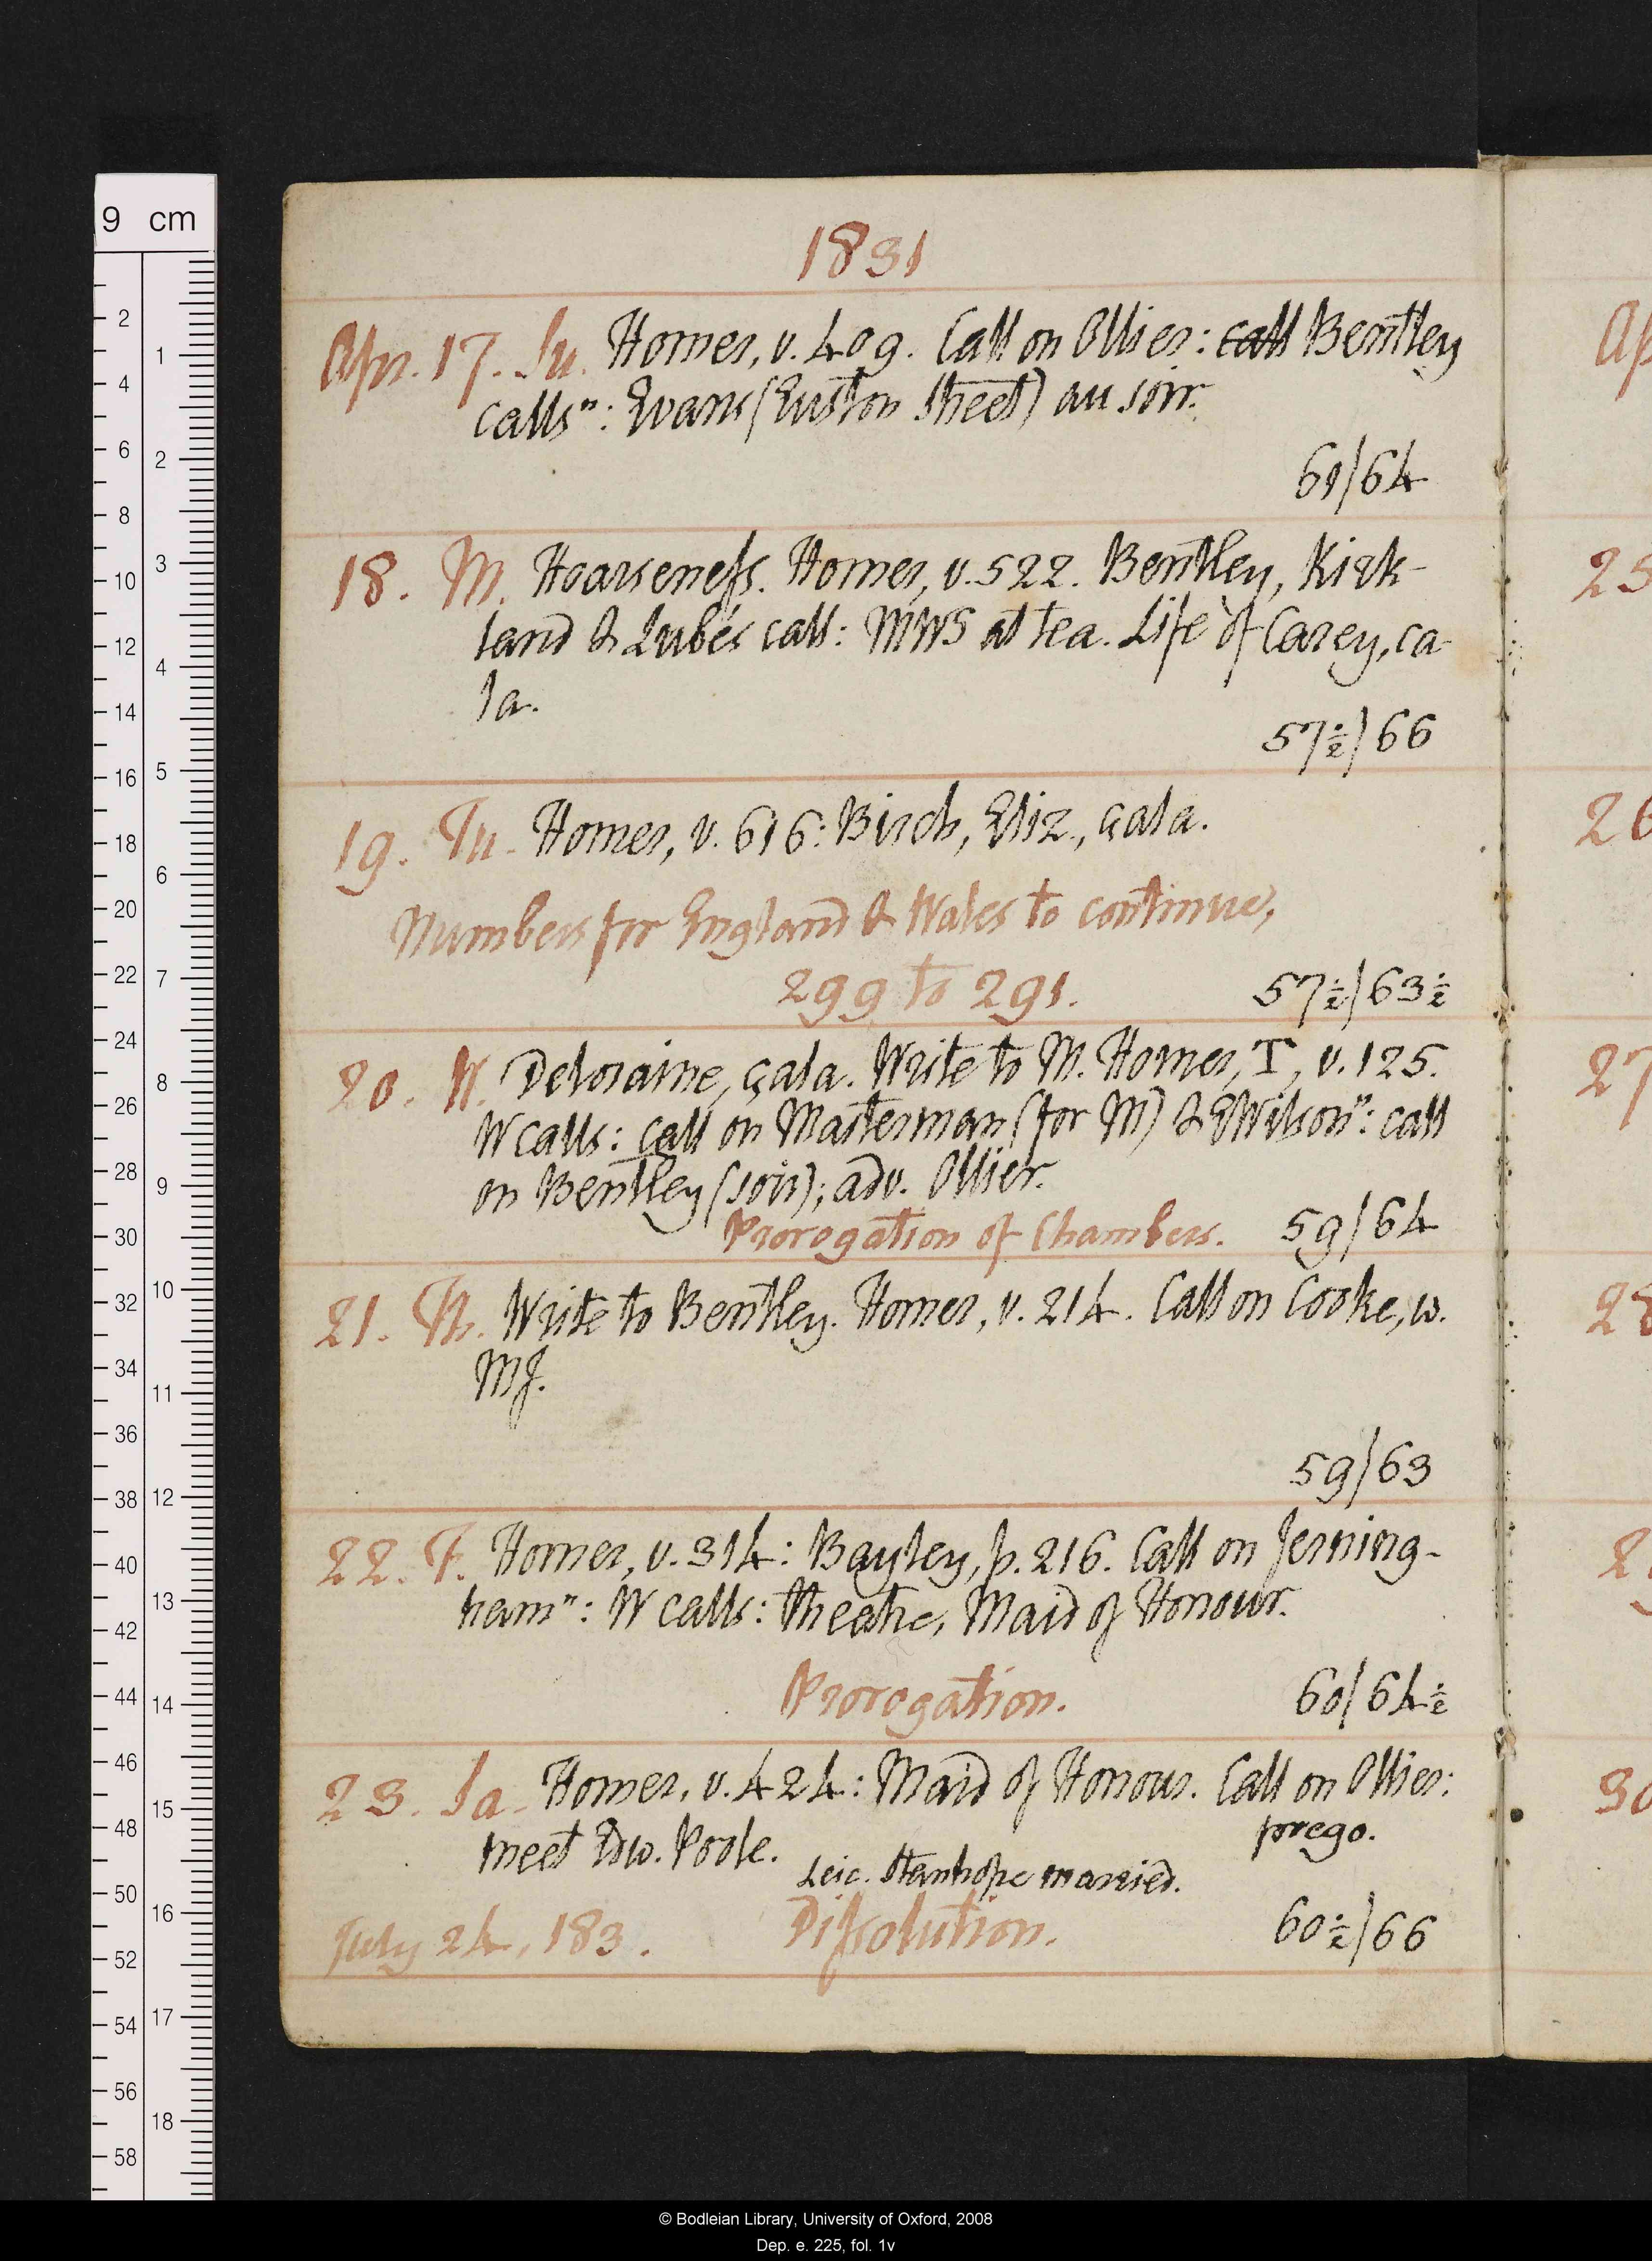 9 cm
1831
Apr. 17. Su. Homer, v. 409. Call on Ollier: call Bentley
callsⁿ: Evans (Euston Street) au soir.
61/64
18. M. Hoarseness. Homer, v. 522. Bentley, Kirk-
land & Lubé's call: MWS at tea. Life of Carey, ça-
la.
57½/66
19. Tu. Homer, v. 616: Birch, Eliz., çala.
Numbers for England & Wales to continue,
299 to 291.
57½/63½
20. W. Deloraine, çala. Write to M. Homer, T, v. 125.
W calls: call on Masterman (for M) & EWilsonⁿ: call
on Bentley (soir); adv. Ollier.
Prorogation of Chambers. 59/64
21. Th. Write to Bentley. Homer, v. 214. Call on Cooke, w.
MJ.
59/63
22. F. Homer, v. 314: Bayley, p. 216. Call on Jerning-
hamⁿ: W calls: theatre, Maid of Honour.
Prorogation. 60/64½
23. Sa. Homer, v. 424: Maid of Honour. Call on Ollier:
meet Edw. Poole. prego.
Leic. Stanhope married.
July 24, 183 . Dissolution. 60½/66
© Bodleian Library, University of Oxford, 2008
Dep. e. 225, fol. 1v